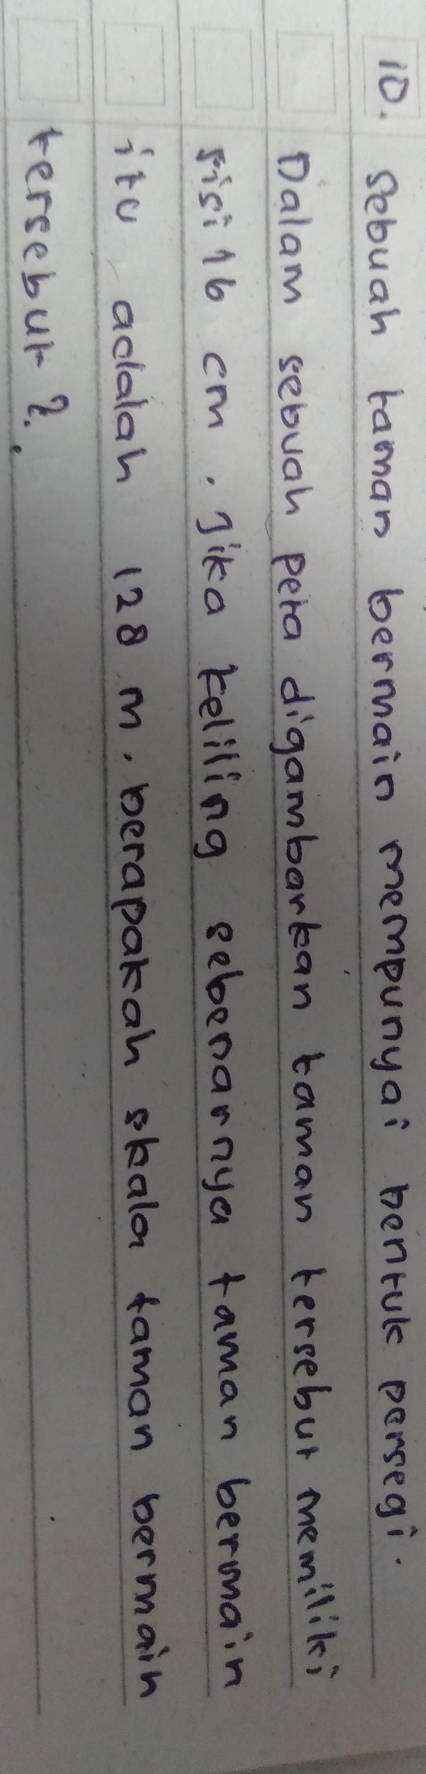 10. Sebuah taman bermain mempunyai bentuk persegi.
Dalam sebuah peta digambarkan taman tersebut memiliki
sisi 16 cm. Jika keliling sebenarnya taman bermain
itu adalah 128 m, berapakah skala taman bermain
tersebut?.